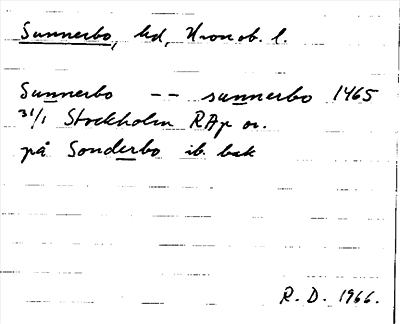 Sunnerbo, hd, Kronob. l.
Sunnerbo -- sunnerbo 1465
31/1 Stockholm RAp or.
på Sonderbo ib. bak
R. D. 1966.